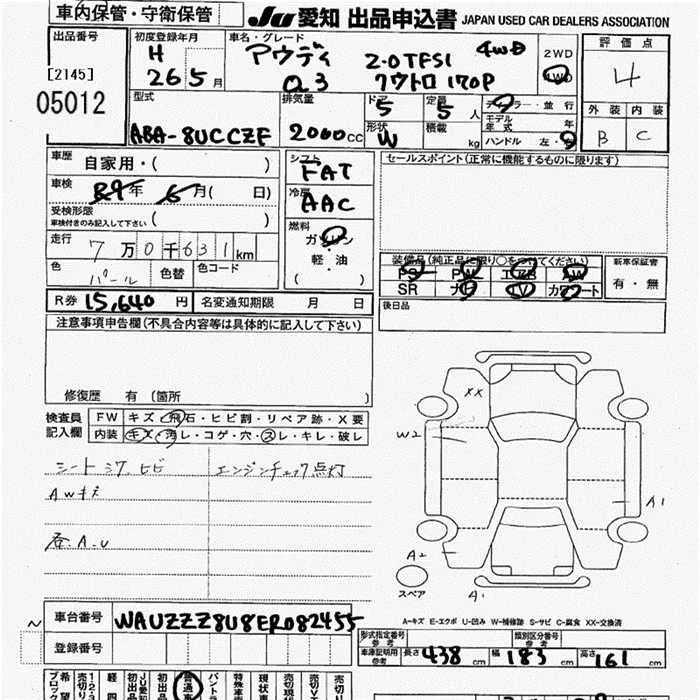 車内保管・守衛保管
JU 愛知 出品申込書 JAPAN USED CAR DEALERS ASSOCIATION
出品番号
[2145]
05012
初度登録年月
H
26 5月
車名・グレード
アウディ 2.0TFSI 4WD
Q3 クワトロ 170P
2WD
4WD
評価点
4
外装 内装
B C
型式
ABA-8UCCZF
排気量
2000cc
ドア
5
形状
W
定員
5人
積載
kg
ディーラー・並行
モデル年式 年
ハンドル 左・右
車歴
自家用・( )
車検
29年 6月( 日)
受検形態
車検付きのみ記入して下さい ( )
走行
7万0千631km
色
パール
色替
色コード
シフト
FAT
冷房
AAC
燃料
ガソリン
軽・油
( )
セールスポイント(正常に機能するものに限ります)
装備品(純正品に限り○をつけてください)
PS PW エアB AW
SR ナビ TV カワシート
新車保証書
有・無
後日品
R券 15,640円
名変通知期限 月 日
注意事項申告欄(不具合内容等は具体的に記入して下さい)
修復歴 有 (箇所 )
検査員
記入欄
FW キズ・飛石・ヒビ割・リペア跡・X要
内装 キズ・汚レ・コゲ・穴・スレ・キレ・破レ
シート シワ ヒビ エンジンチェック点灯
AWキズ
各A.U
XX
W2
A1
A2
A1
スペア
A-キズ E-エクボ U-凹み W-補修跡 S-サビ C-腐食 XX-交換済
車台番号
WAUZZZ8U8ER082455
登録番号
形式指定番号
参考
類別区分番号
参考
車庫証明用
参考
長さ 438cm
幅 183cm
高さ 161cm
普通車